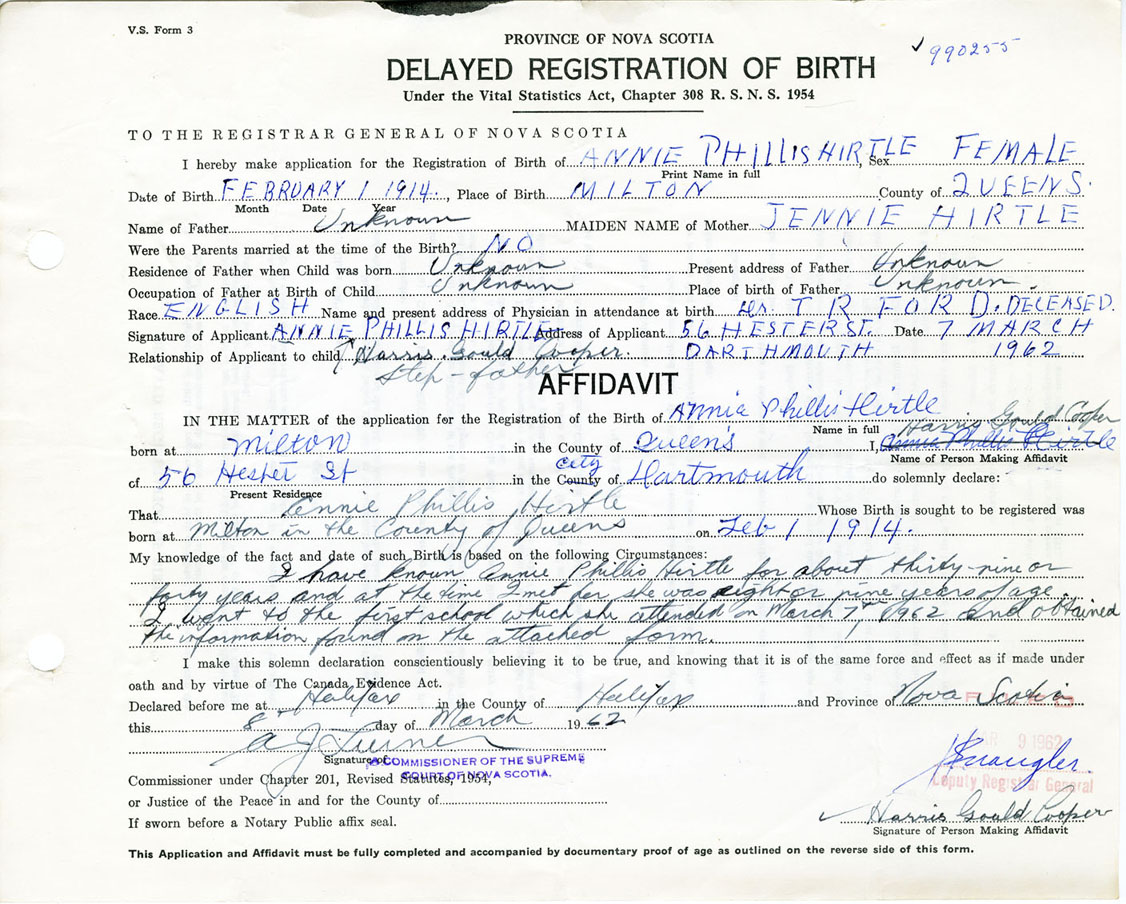 V.S. Form 3
PROVINCE OF NOVA SCOTIA
✓990255
DELAYED REGISTRATION OF BIRTH
Under the Vital Statistics Act, Chapter 308 R. S. N. S. 1954
TO THE REGISTRAR GENERAL OF NOVA SCOTIA
I hereby make application for the Registration of Birth of ANNIE PHILLIS HIRTLE, Sex FEMALE
Print Name in full
Date of Birth FEBRUARY 1 1914, Place of Birth MILTON County of QUEENS.
Month Date Year
Name of Father Unknown MAIDEN NAME of Mother JENNIE HIRTLE
Were the Parents married at the time of the Birth? NO
Residence of Father when Child was born Unknown Present address of Father Unknown
Occupation of Father at Birth of Child Unknown Place of birth of Father Unknown.
Race ENGLISH Name and present address of Physician in attendance at birth Dr. T R FORD. DECEASED.
Signature of Applicant ANNIE PHILLIS HIRTLE Address of Applicant 56 HESTER ST. Date 7 MARCH
Relationship of Applicant to child Harris Gould Cooper. DARTMOUTH 1962
Step-father
AFFIDAVIT
IN THE MATTER of the application for the Registration of the Birth of Annie Phillis Hirtle
Name in full Harris Gould Cooper
born at Milton in the County of Queen's I, Annie Phillis Hirtle
Name of Person Making Affidavit
of 56 Hester St in the County of City Dartmouth do solemnly declare:
Present Residence
That Annie Phillis Hirtle Whose Birth is sought to be registered was
born at Milton in the County of Queens on Feb 1 1914.
My knowledge of the fact and date of such Birth is based on the following Circumstances:
I have known Annie Phillis Hirtle for about thirty-nine or
forty years and at the time I met her she was eight or nine years of age
I went to the first school which she attended on March 7th, 1962 and obtained
the information found on the attached form.
I make this solemn declaration conscientiously believing it to be true, and knowing that it is of the same force and effect as if made under
oath and by virtue of The Canada Evidence Act.
Declared before me at Halifax in the County of Halifax and Province of Nova Scotia
this 8 day of March 1962
A J Turner
Signature of
A COMMISSIONER OF THE SUPREME
COURT OF NOVA SCOTIA.
9 1962
Deputy Registrar General
Commissioner under Chapter 201, Revised Statutes, 1954,
or Justice of the Peace in and for the County of
Harris Gould Cooper
If sworn before a Notary Public affix seal.
Signature of Person Making Affidavit
This Application and Affidavit must be fully completed and accompanied by documentary proof of age as outlined on the reverse side of this form.